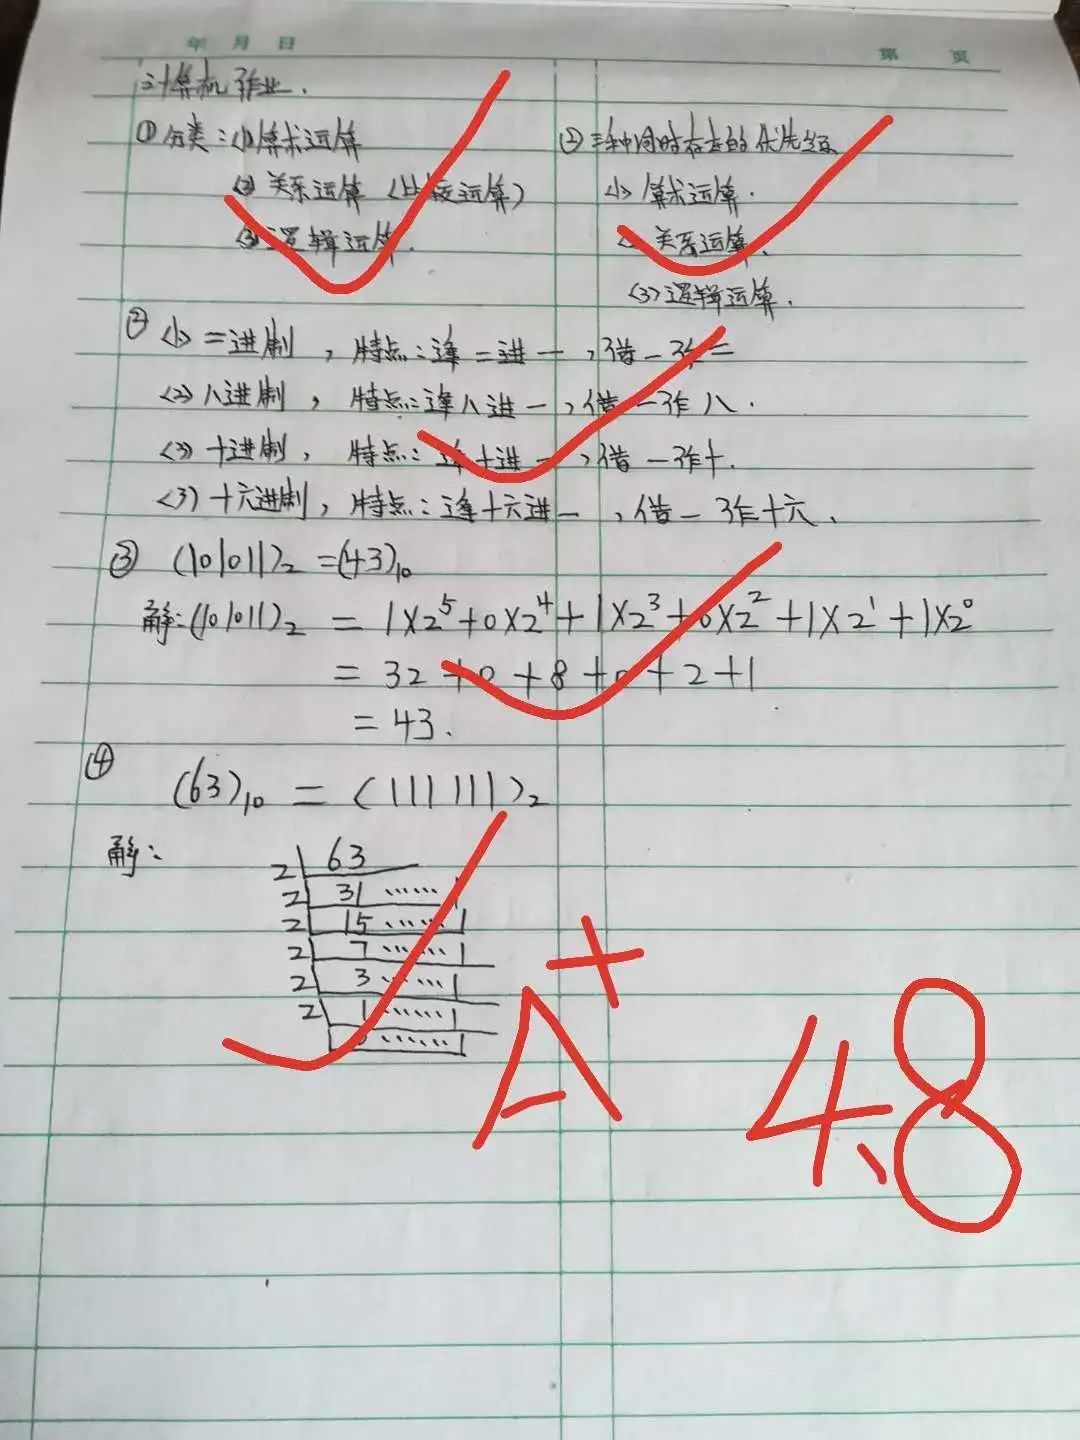 年 月 日
第 页
计算机作业.
①分类:<1>算术运算
<2>关系运算(比较运算)
<3>逻辑运算.
②三种同时存在的优先级
<1>算术运算.
关系运算.
<3>逻辑运算.
② <1>二进制,特点:逢二进一,借一作二
<2>八进制,特点:逢八进一,借一作八.
<3>十进制,特点:逢十进一,借一作十.
<3>十六进制,特点:逢十六进一,借一作十六.
③ (101011)₂=(43)₁₀
解:(101011)₂ = 1×2⁵+0×2⁴+1×2³+0×2²+1×2¹+1×2⁰
= 32+0+8+0+2+1
= 43.
④
(63)₁₀ = (111111)₂
解:
2 63
2 31 ……1
2 15 ……1
2 7 ……1
2 3 ……1
2 1 ……1
0 ……1
A+
4.8